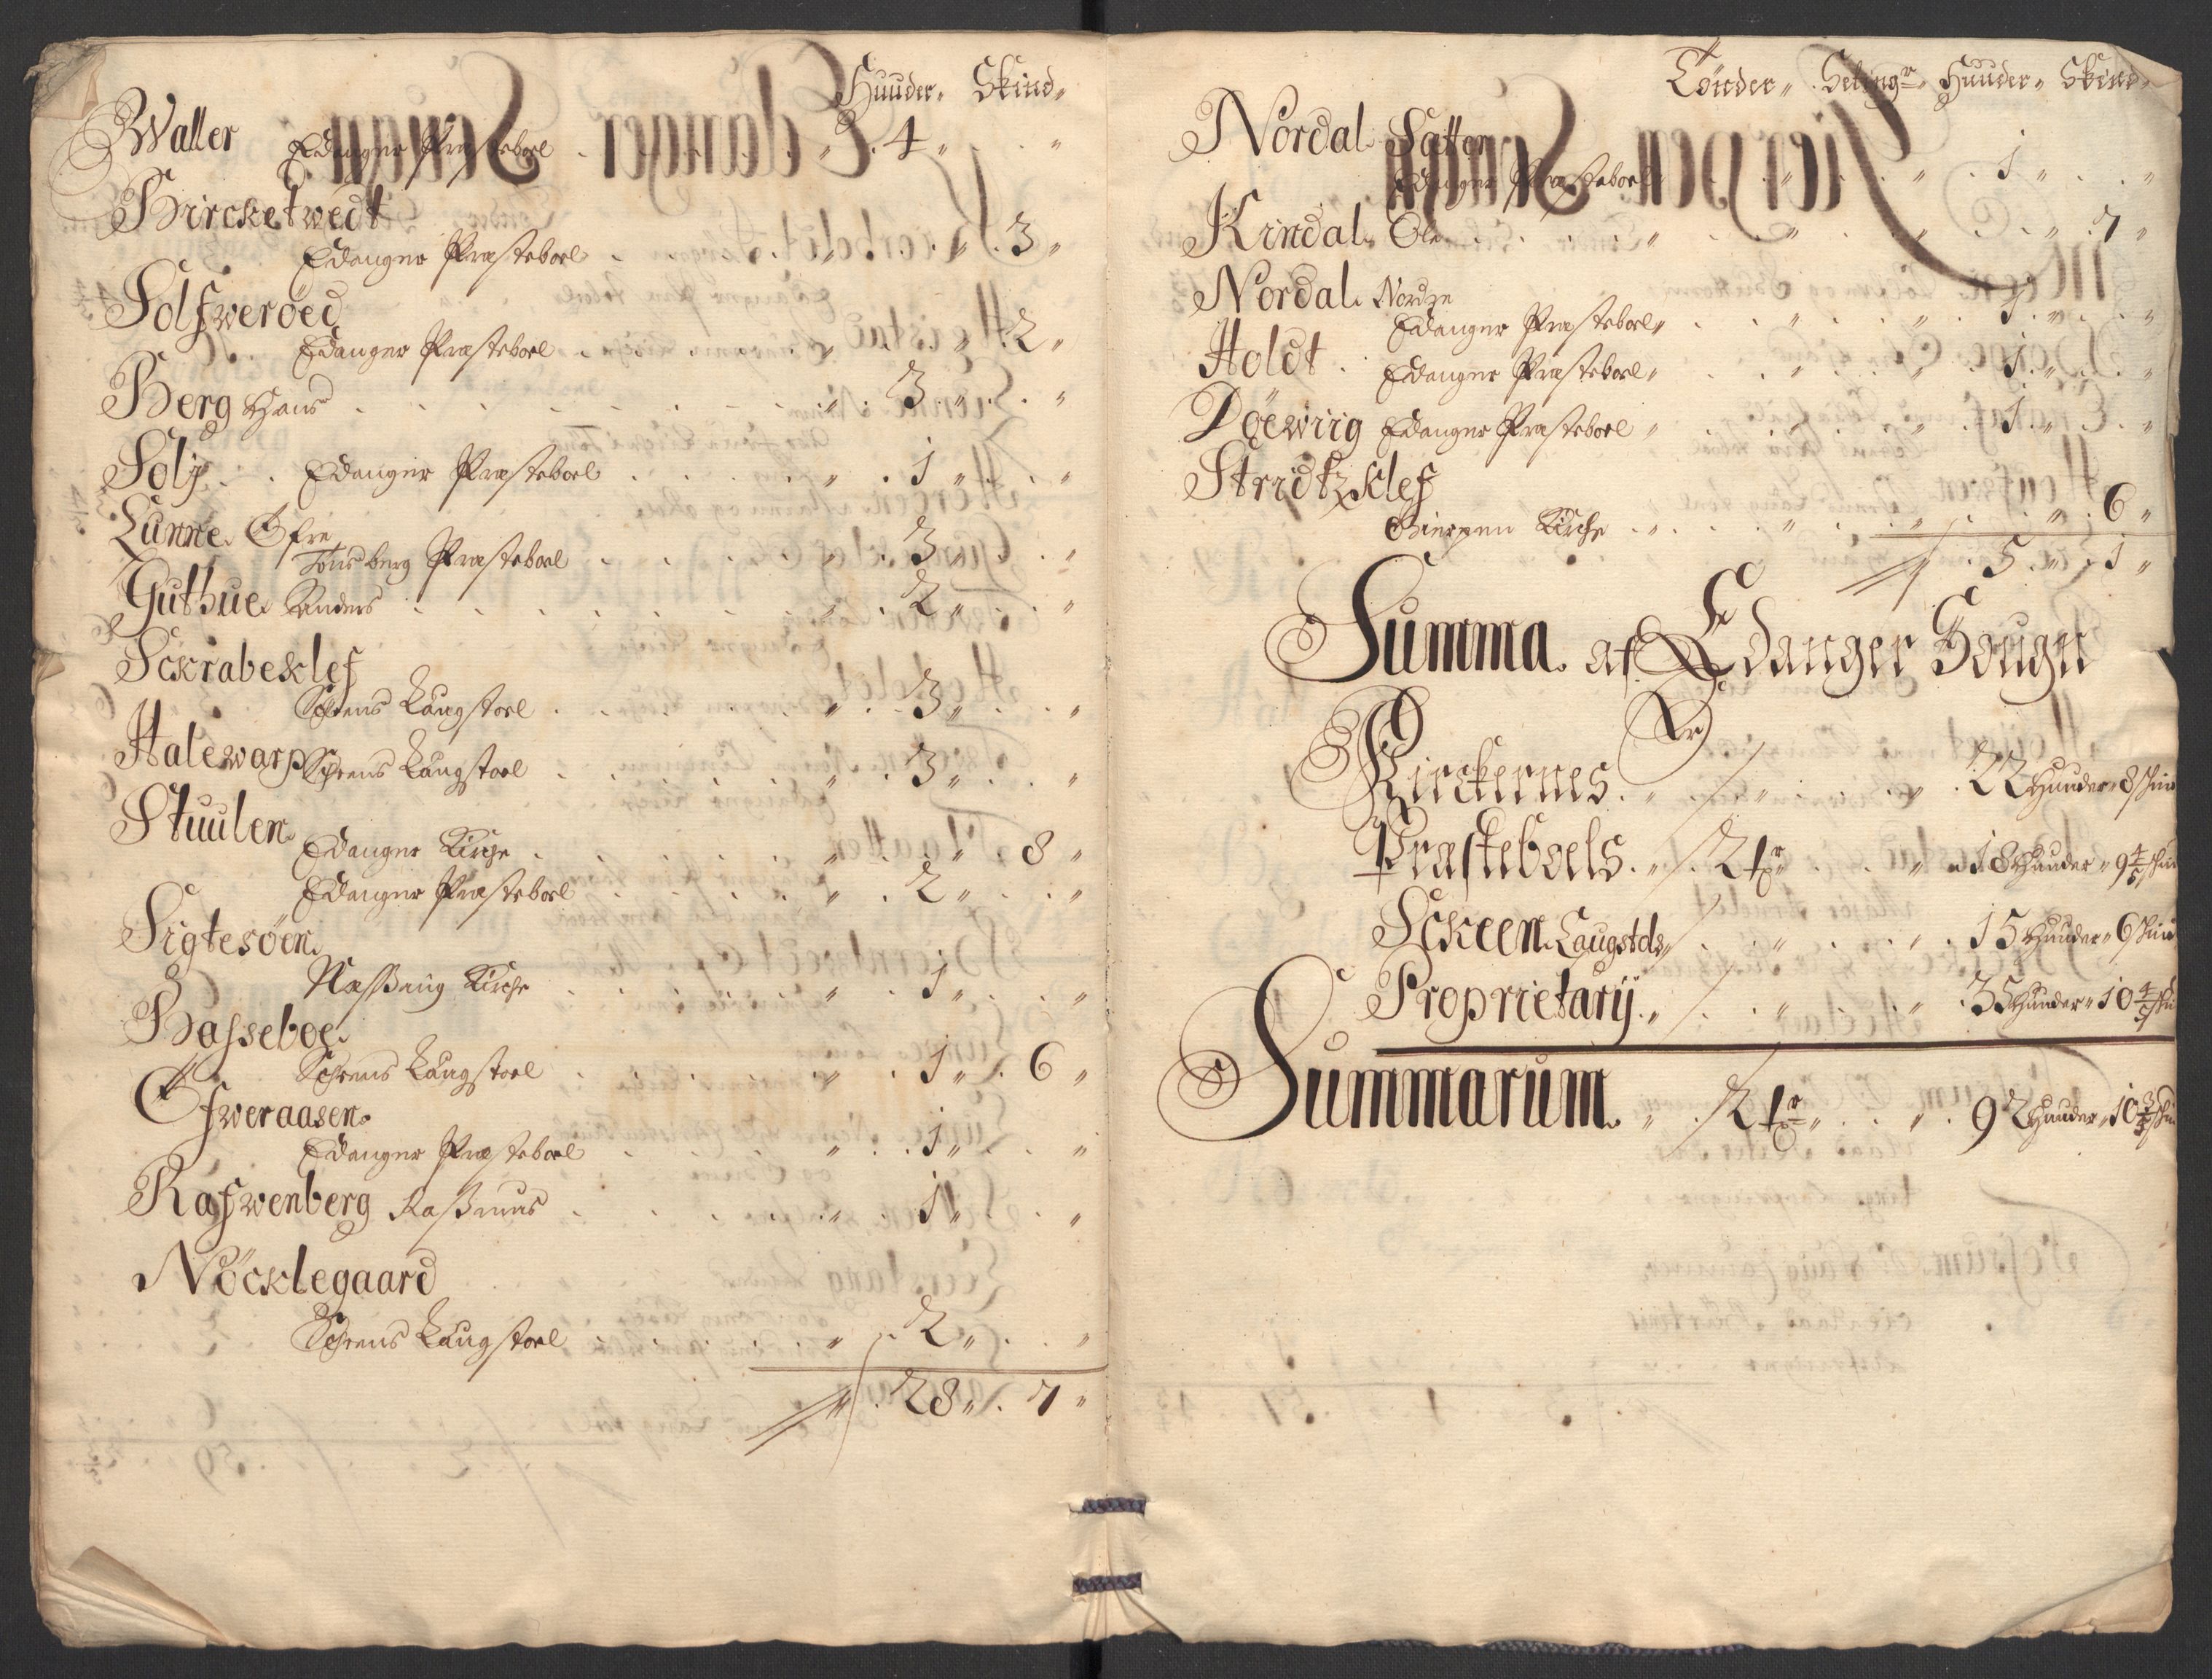 Huuder, Skind,
Waller Edanger Præsteboel . . . " . 4 " . . "
Bircketwedt
Edanger Præsteboel . . " . 3 "
Solfweröed
Edanger Præsteboel . . " . 2 "
Berg Hans . . . . " . 3 " . . "
Solj . . Edanger Præsteboel . . . " . 1 " . . "
Lunne Øfre
Tonsberg Præsteboel . . . 3 " . . "
Guthue Anders . . . . " . 2 " . . "
Sckrabeklef
Schiens Laugstoel . . . " . 3 " . . "
Halewarp Schiens Laugstoel . . . " . 3 " . . "
Stuulen
Edanger Kirche . . . " . . " . 8 "
Edanger Præsteboel . . . " . 2 " . . "
Sigtesöen
Kirche . . . " . 1 " . . "
Basseboe
Schiens Laugstoel . . . " . 1 " . 6 "
Ofweraasen
Edanger Præsteboel . . . " . 1 " . . "
Rafwenberg Raßmus . . . " . 1 " . . "
Nöcklegaard
Schiens Laugstoel . . . " . 2 " . . "
" . 28 " . 7 "
Tönder " Setting " Huuder " Skind "
Nordal Sætter
Edanger Præsteboel . . " . 1 " . . "
Kindal Ole . . . " . . " . . " . 7 "
Nordal Nordre
Edanger Præsteboel " . . " . 1 " . . "
Holdt . Edanger Præsteboel " . . " . 1 " . . "
Döewiig Edanger Præsteboel " . . " . 1 " . . "
Stridtzklef
Gierpen Kirche . . . " . . " . . " . 6 "
" . 5 " . 1 "
Summa af Edanger Sougn
Er
Kirckernes . " . . " . . " . 22 Huuder " 8 skin
Præsteboels . " . 2 tr . . " 18 Huuder " 9 4/5 skin
Sckeen Laugstols " . . " . . " . 15 Huuder " 6 skin
Proprietarij . " . . " . . " . 35 Huuder " 10 4/5 ski
Summarum . " . 2 tr " . . " . 92 Huuder " 10 3/5 ski